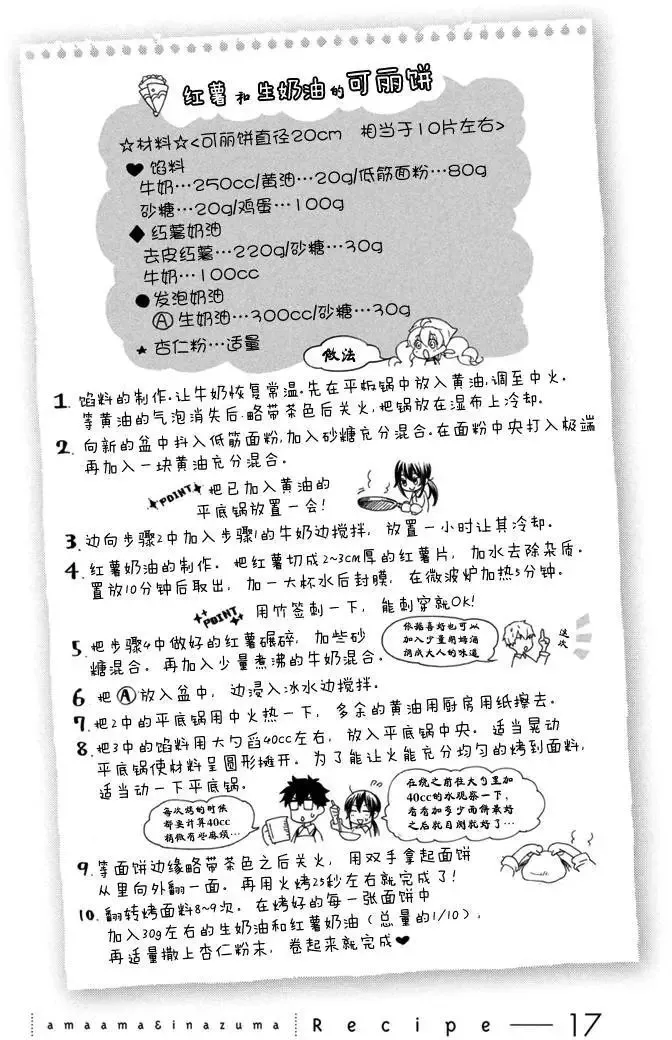 红薯和生奶油的可丽饼
☆材料☆<可丽饼直径20cm 相当于10片左右>
♥ 馅料
牛奶…250cc/黄油…20g/低筋面粉…80g
砂糖…20g/鸡蛋…100g
◆ 红薯奶油
去皮红薯…220g/砂糖…30g
牛奶…100cc
● 发泡奶油
Ⓐ 生奶油…300cc/砂糖…30g
★ 杏仁粉…适量
做法
1. 馅料的制作.让牛奶恢复常温.先在平板锅中放入黄油,调至中火.
等黄油的气泡消失后.略带茶色后关火,把锅放在湿布上冷却.
2. 向新的盆中抖入低筋面粉,加入砂糖充分混合.在面粉中央打入极端
再加入一块黄油充分混合.
POINT 把已加入黄油的
平底锅放置一会!
3. 边向步骤2中加入步骤1的牛奶边搅拌, 放置一小时让其冷却.
4. 红薯奶油的制作. 把红薯切成2~3cm厚的红薯片, 加水去除杂质.
置放10分钟后取出, 加一大杯水后封膜, 在微波炉加热5分钟.
POINT 用竹签刺一下, 能刺穿就OK!
5. 把步骤4中做好的红薯碾碎, 加些砂
糖混合. 再加入少量煮沸的牛奶混合.
依据喜好也可以
加入少量朗姆酒
调成大人的味道
这次
6 把Ⓐ放入盆中, 边浸入冰水边搅拌.
7. 把2中的平底锅用中火热一下, 多余的黄油用厨房用纸擦去.
8. 把3中的馅料用大勺舀40cc左右, 放入平底锅中央. 适当晃动
平底锅使材料呈圆形摊开. 为了能让火能充分均匀的烤到面料,
适当动一下平底锅.
每次烤的时候
都要计算40cc
稍微有些麻烦…
在烧之前往大勺里加
40cc的水观察一下,
看看加多少面饼最好
之后就目测就好了…
9. 等面饼边缘略带茶色之后关火, 用双手拿起面饼
从里向外翻一面. 再用火烤25秒左右就完成了!
10. 翻转烤面料8~9次. 在烤好的每一张面饼中
加入30g左右的生奶油和红薯奶油(总量的1/10),
再适量撒上杏仁粉末, 卷起来就完成♥
amaama&inazuma Recipe — 17